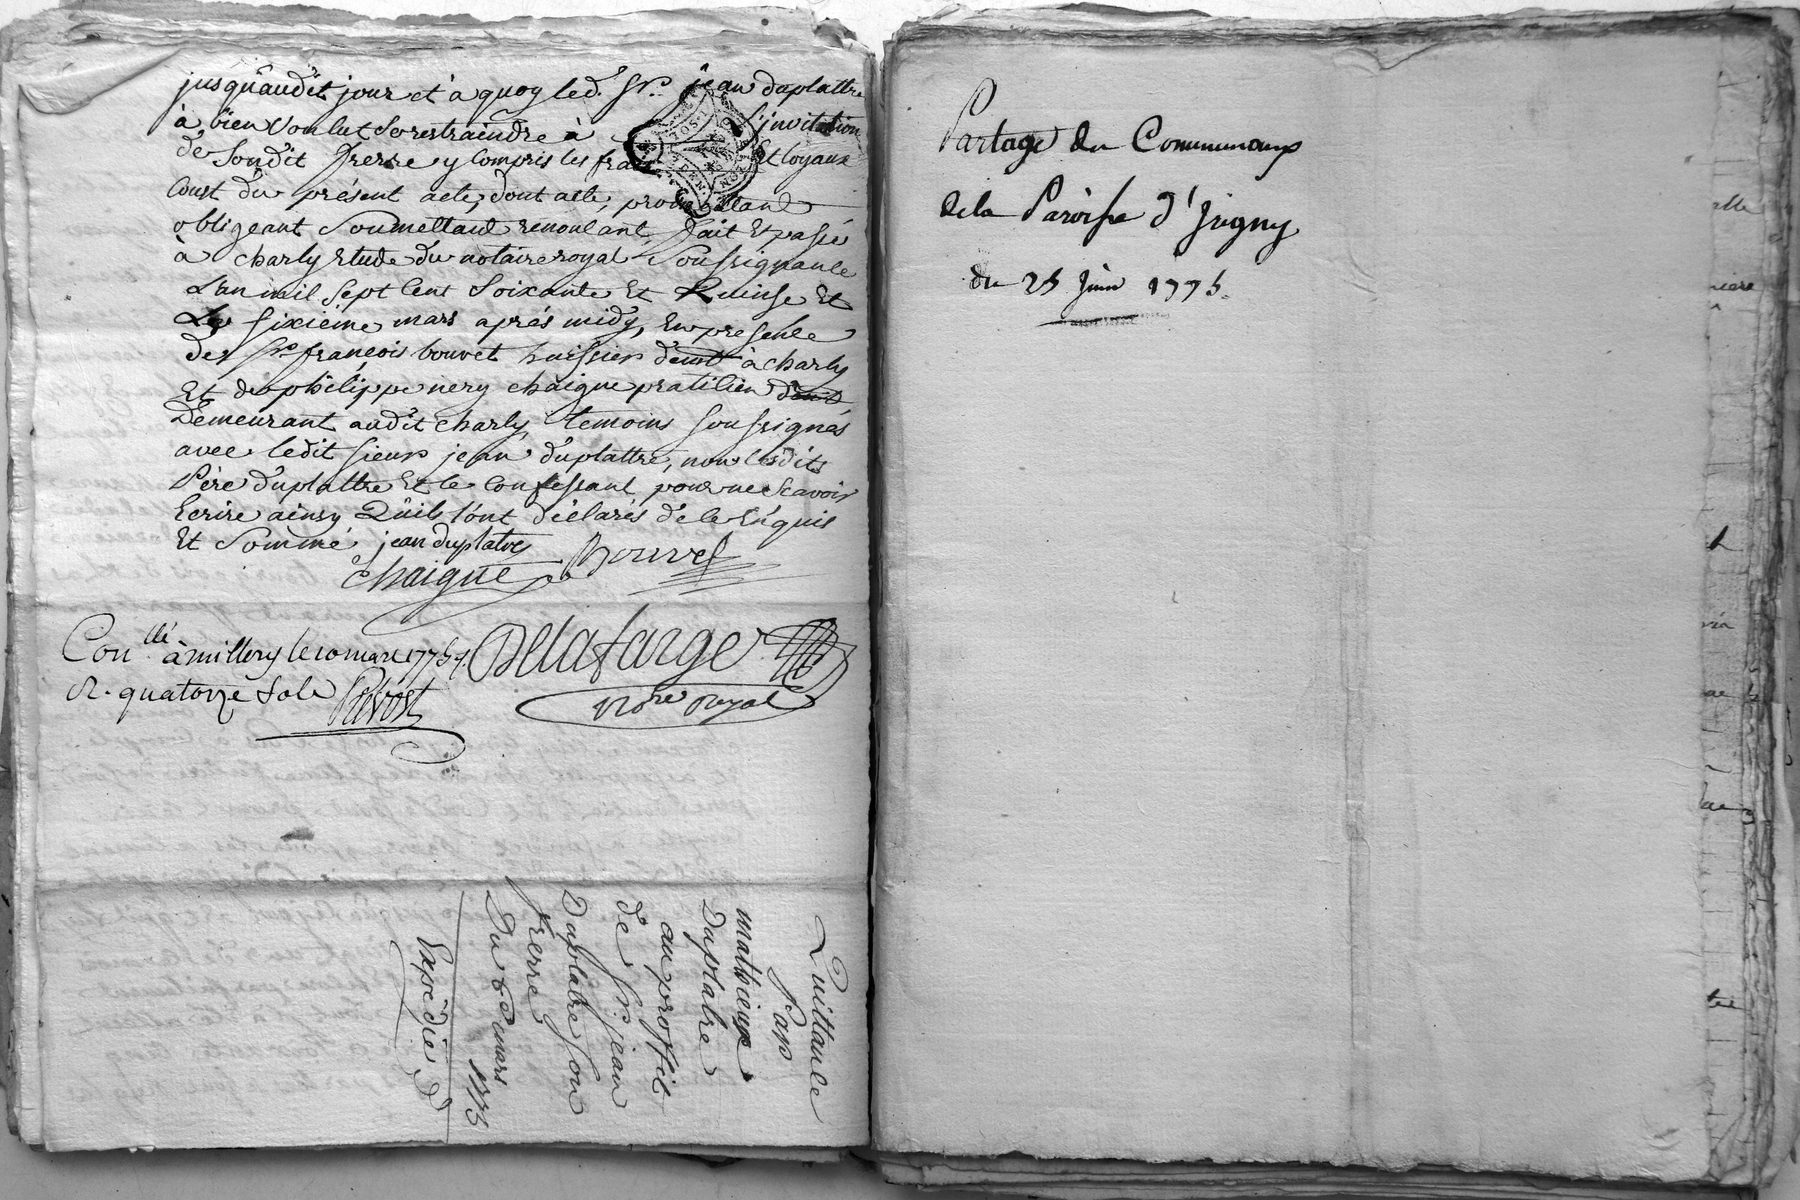 jusqu'audit jour et à quoy led. Sr. jean duplattre
à bien voulut se restraindre à l'invitation
de Sondit frerre y compris les frais et loyaux
Coust du présent acte, dont acte, promettant
obligeant Soumettant renonlant, fait Et passé
à Charly Etude du notaire royal Soussignante
L'an mil Sept Cent Soixante Et Quinse Et
Le Sixième mars aprés midy, En presence
de Sr. françois bouvet huissier demt à charly
Et de philippe nery chaigne pratitien
Demeurant audit charly temoins Soussignés
avec ledit sieur jean duplattre, non lesdits
Père duplattre Et le Confessant pour ne Scavoir
Ecrire ainsy Qu'ils l'ont déclarés de ce Enquis
Et Sommé
jean duplatre
Chaigne Bouvet
Conllé à millery le 10 mars 1775
R. quatorze Sols Prévost
Delafarge
Nore Royal
Quittance
par
mathieu
Duplatre
au proffit
de Sr. jean
Duplatre Son
frerre
Du 6 mars 1775
Expédié
Partage du Communaux
de la Paroisse d'Irigny
du 25 Juin 1775.